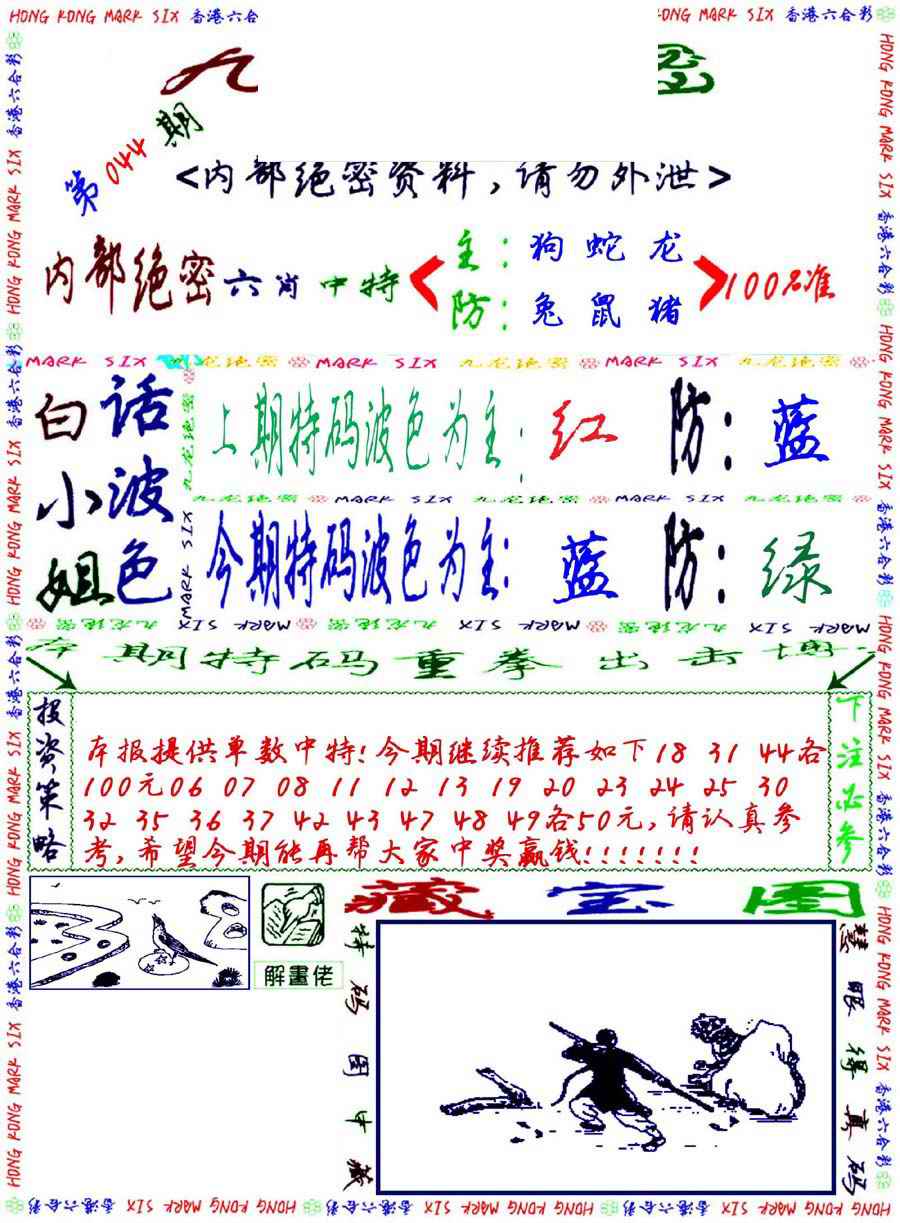 HONG KONG MARK SIX 香港六合
KONG MARK SIX 香港六合彩
九
密
第044期
<内部绝密资料,请勿外泄>
内部绝密六肖中特
主:狗 蛇 龙
防:兔 鼠 猪
100%准
MARK SIX 九龙绝密 MARK SIX 九龙绝密 MARK SIX 九龙绝密
白话
小波
姐色
上期特码波色为主:红 防:蓝
九龙绝密 MARK SIX 九龙绝密 MARK SIX 九龙绝密
今期特码波色为主:蓝 防:绿
九龙绝密 MARK SIX 九龙绝密 MARK SIX 九龙绝密 MARK SIX
本期特码重拳出击
投资策略
本报提供单数中特!今期继续推荐如下18 31 44各
100元06 07 08 11 12 13 19 20 23 24 25 30
32 35 36 37 42 43 47 48 49各50元,请认真参
考,希望今期能再帮大家中奖赢钱!!!!!!!
下注必参
解畫佬
藏宝图
特码图中藏
慧眼得真码
HONG KONG MARK SIX 香港六合彩 HONG KONG MARK SIX 香港六合彩 HONG KONG MARK SIX 香港六合彩